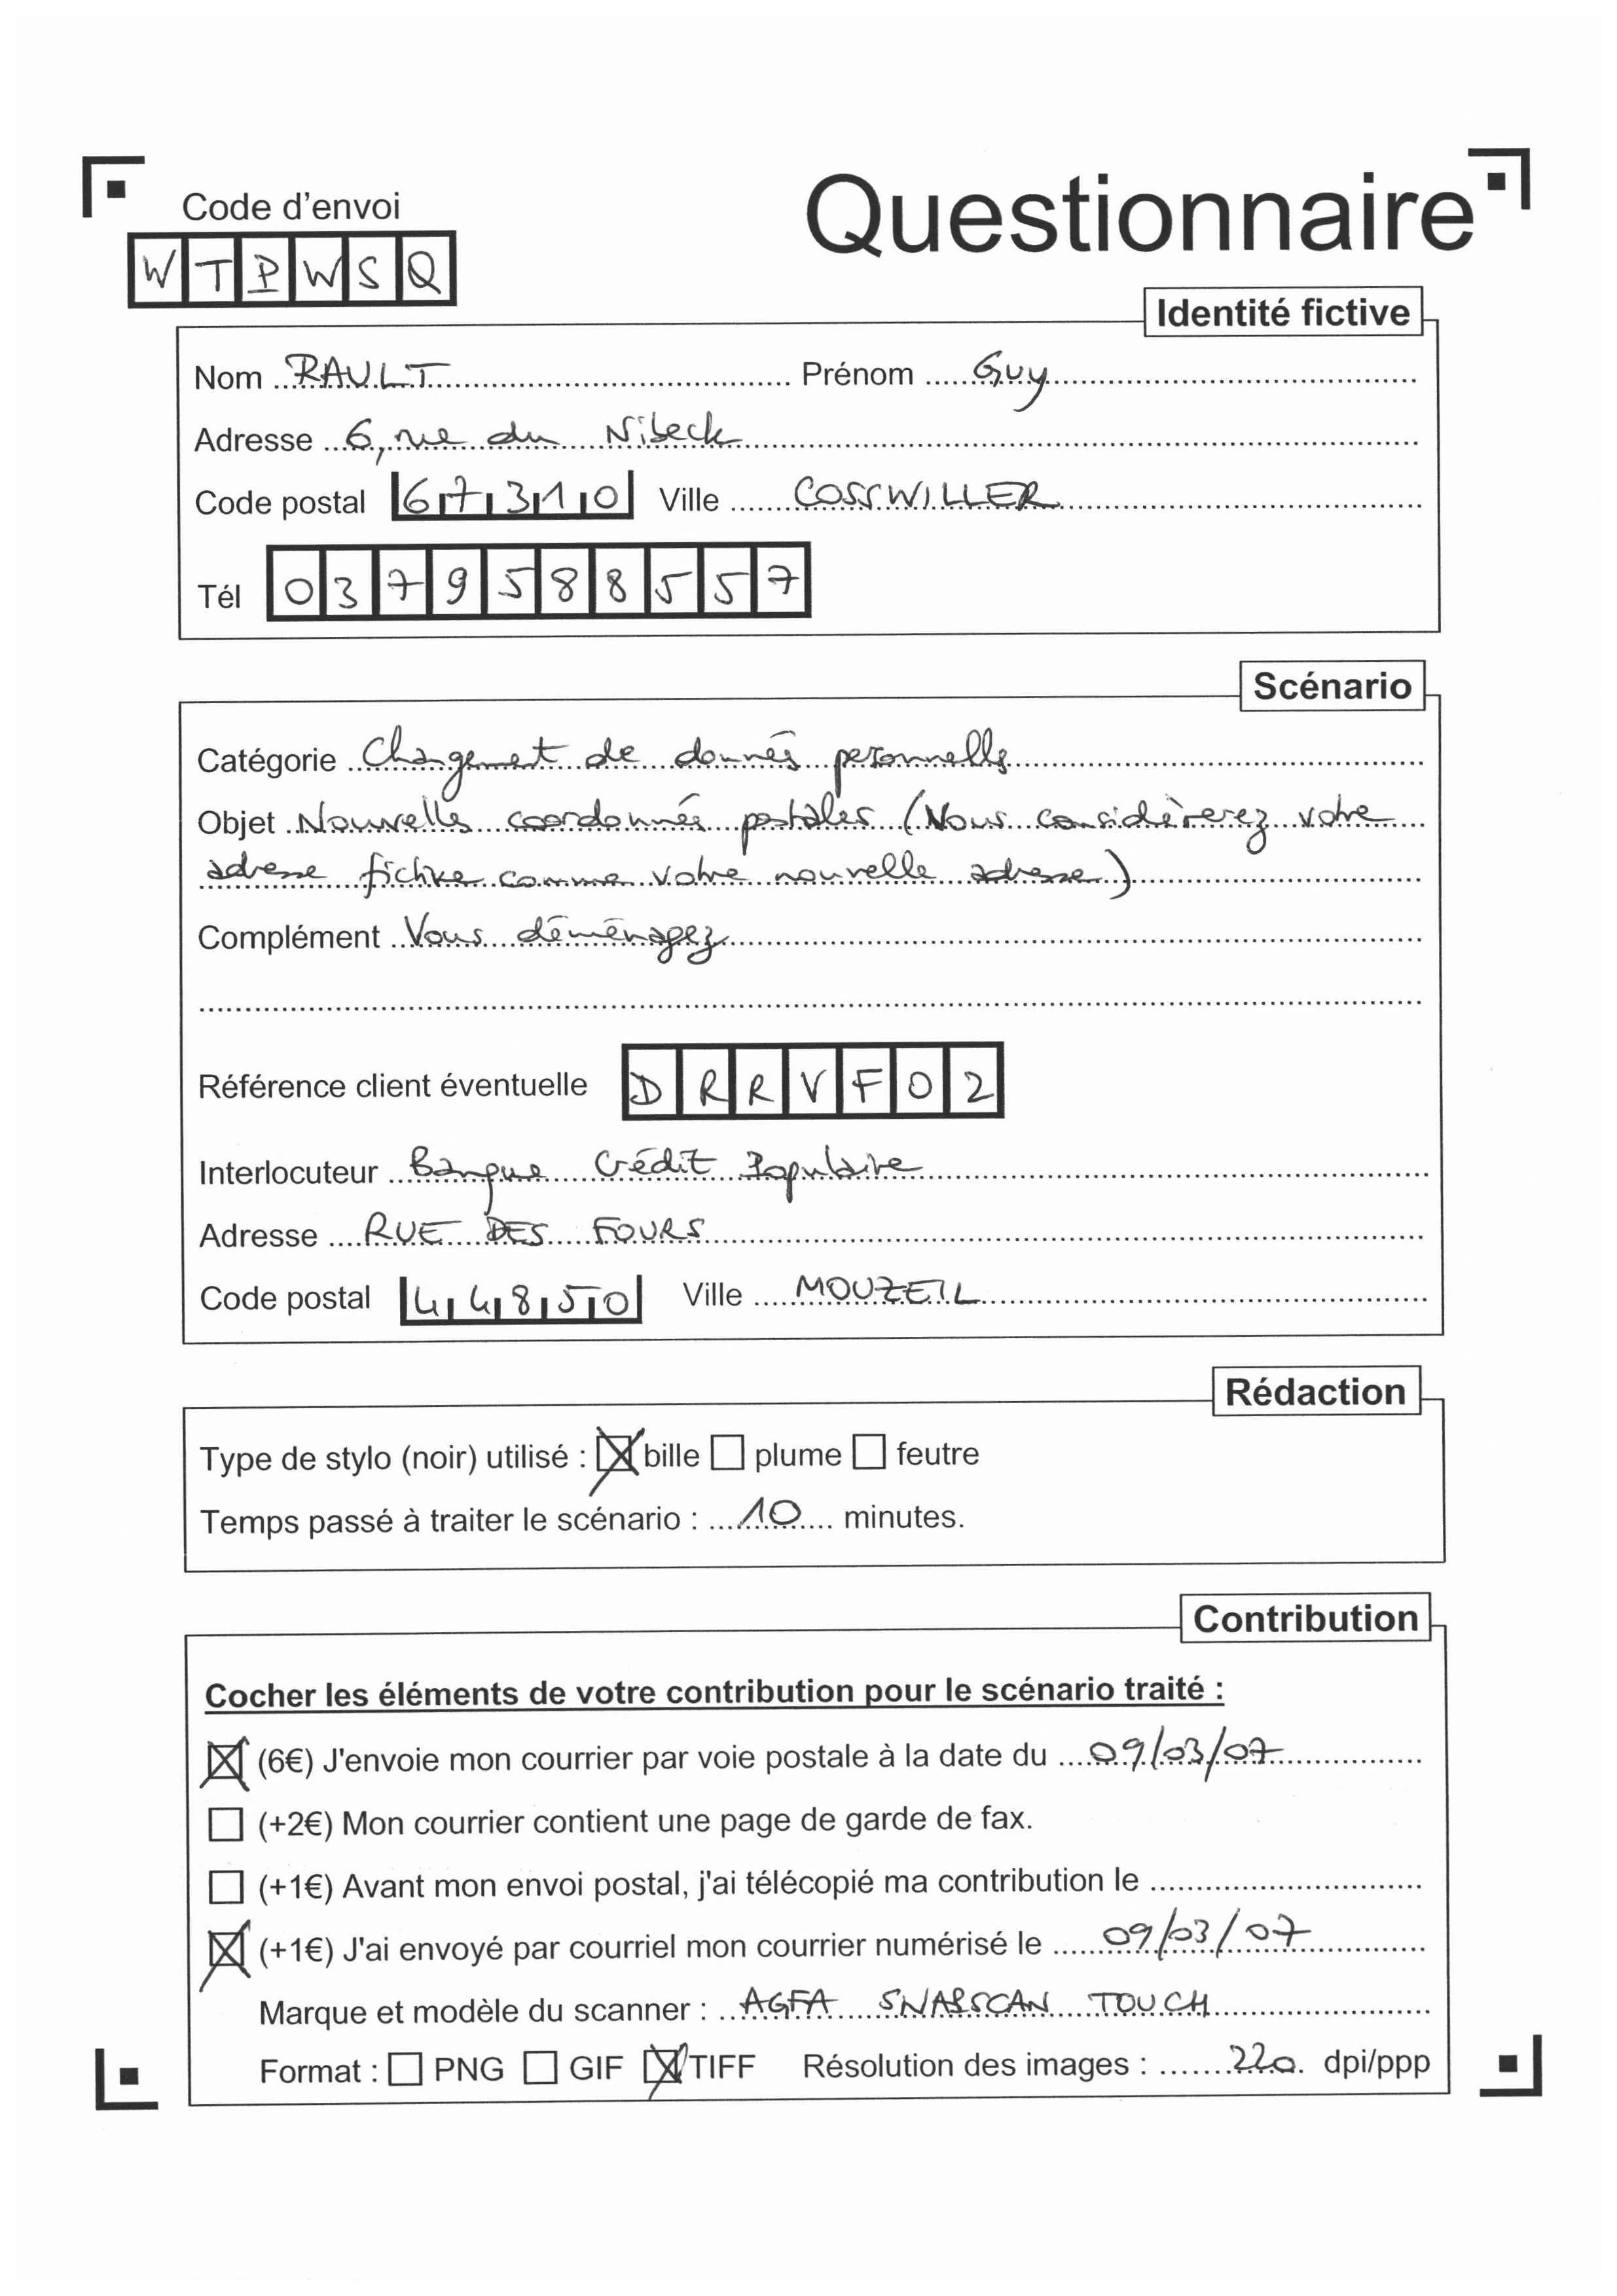 Code d'envoi
Questionnaire
WTPWSQ
Identité fictive
Nom RAULT Prénom Guy
Adresse 6, rue du Nibeck
Code postal 67310 Ville COSSWILLER
Tél 0379588557
Scénario
Catégorie Changement de donnés personnelles
Objet Nouvelles coordonnées postales (Vous considèrerez votre
adresse fictive comme votre nouvelle adresse)
Complément Vous déménagez
Référence client éventuelle DRRVF02
Interlocuteur Banque Crédit Populaire
Adresse RUE DES FOURS
Code postal 44850 Ville MOUZEIL
Rédaction
Type de stylo (noir) utilisé : bille plume feutre
Temps passé à traiter le scénario : 10 minutes.
Contribution
Cocher les éléments de votre contribution pour le scénario traité :
(6€) J'envoie mon courrier par voie postale à la date du 09/03/07
(+2€) Mon courrier contient une page de garde de fax.
(+1€) Avant mon envoi postal, j'ai télécopié ma contribution le
(+1€) J'ai envoyé par courriel mon courrier numérisé le 09/03/07
Marque et modèle du scanner : AGFA SNAPSCAN TOUCH
Format : PNG GIF TIFF Résolution des images : 220 dpi/ppp